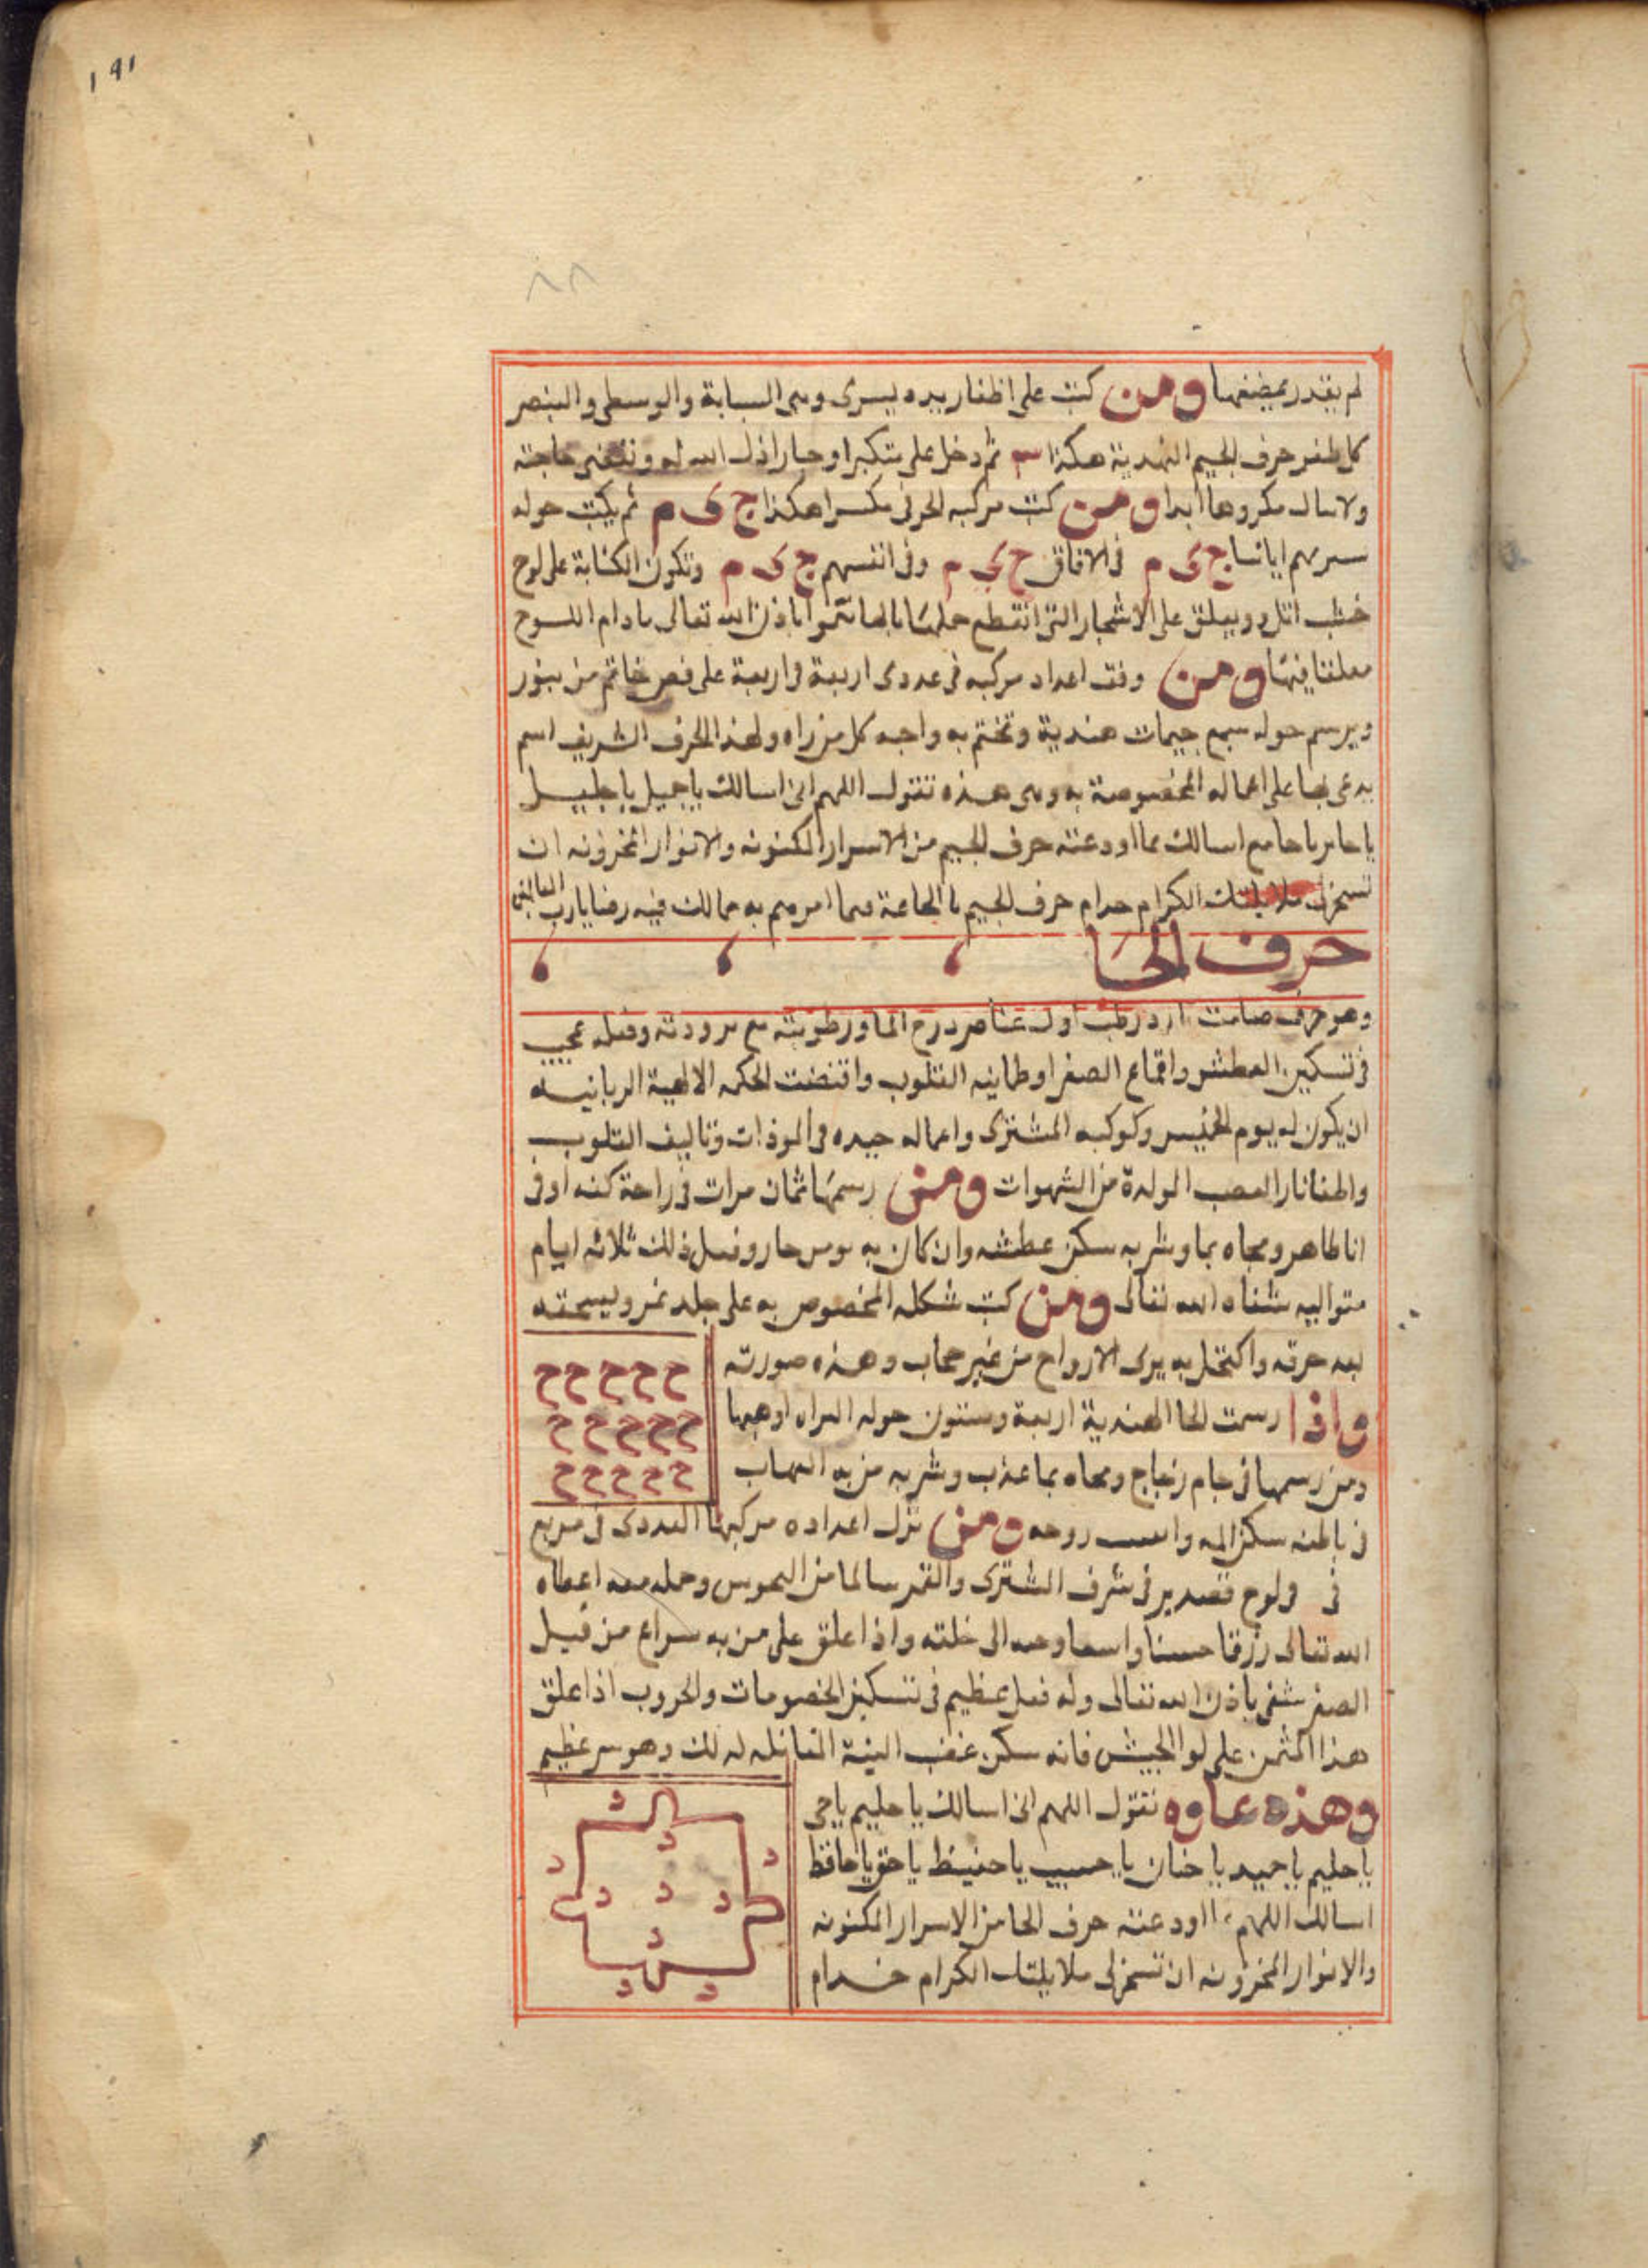 ١٩١
٨٨
لم يقدر بمضغها ومن كتب على اظفار يده يسرى وهى السبابة والوسطى والبنصر
كل ظفر حرف الجيم الهندية هكذا ثم دخل على متكبر او جبار اذل الله له وتقضى حاجته
ولا ينال مكروها ابدا ومن كتب مركبه الحرفى مكسرا هكذا ج ى م ثم يكتب حوله
سنريهم اياتنا ج ى م فى الافاق ج ى م وفى انفسهم ج ى م وتكون الكتابة على لوح
خشب اثل ويعلق على الاشجار التى انقطع حملها باذن الله تعالى مادام اللوح
معلقا فيها ومن وفق اعداد مركبه فى عددى اربعة فى اربعة على فص خاتم من
ويرسم حوله سبع جيمات هندية وتختم به واجبه كل من راه ولهذا الحرف الشريف اسم
يدعى بها على اعماله المخصوصة به وهى هذه تقول اللهم انى اسالك ياجميل ياجليل
ياجابر ياجامع اسالك بما اودعته حرف الجيم من الاسرار المكنونه والانوار المخزونه ان
تسخرلى ملايكتك الكرام خدام حرف الجيم بالطاعة فيما امرهم به مما لك فيه رضا يارب العالمين
حرف الحا
وهو حرف صامت بارد رطب اول عناصر درج الما ورطوبته مع برودته وفعله عجيب
فى تسكين العطش واقماع الصفرا وطمانينه القلوب واقتضت الحكمه الالهية الربانيه
ان يكون له يوم الخميس وكوكبه المشترى واعماله جيده فى الموذات وتاليف القلوب
واطفا نار الغضب المولدة من الشهوات ومن رسمها ثمان مرات فى راحة كفه اوفى
انا طاهر ومحاه بما وشربه سكن عطشه وان كان به حار وفعل ذلك ثلاثه ايام
متواليه شفاه الله تعالى ومن كتب شكله المخصوص به على جلد نمر ويسحقه
بعد حرقه واكتحل به يرى الارواح من غير حجاب وهذه صورته
ح ح ح ح ح
ح ح ح ح ح
ح ح ح ح ح
واذا رسمت الحا الهندية اربعة وستون حوله
ومن رسمها فى جام زجاج ومحاه بما عذب وشربه من به التهاب
فى باطنه سكن المه روحه ومن نزل اعداده مركبها العددى فى مربع
فى فى لوح قصدير فى شرف المشترى والقمر سالما من النحوس وحمله معه اعطاه
الله تعالى رزقا حسنا واسعا وحببه الى خلقه واذا علق على من به من قبيل
الصفر شفى باذن الله تعالى وله فعل عظيم فى تسكين الخصومات والحروب اذا علق
هذا المثمن على لوا الجيش فانه سكن غضب الفية المقابله له لذلك وهو سر عظيم
وهذه دعاوه تقول اللهم انى اسالك ياحليم ياحى
ياحليم ياحميد ياحنان ياحسيب ياحفيظ ياحق ياحافظ
اسالك اللهم بما اودعته حرف الحا من الاسرار المكنونه
والانوار المخزونه ان تسخرلى ملايكتك الكرام خدام
د
د
د
د
د
د
د
د
د
د